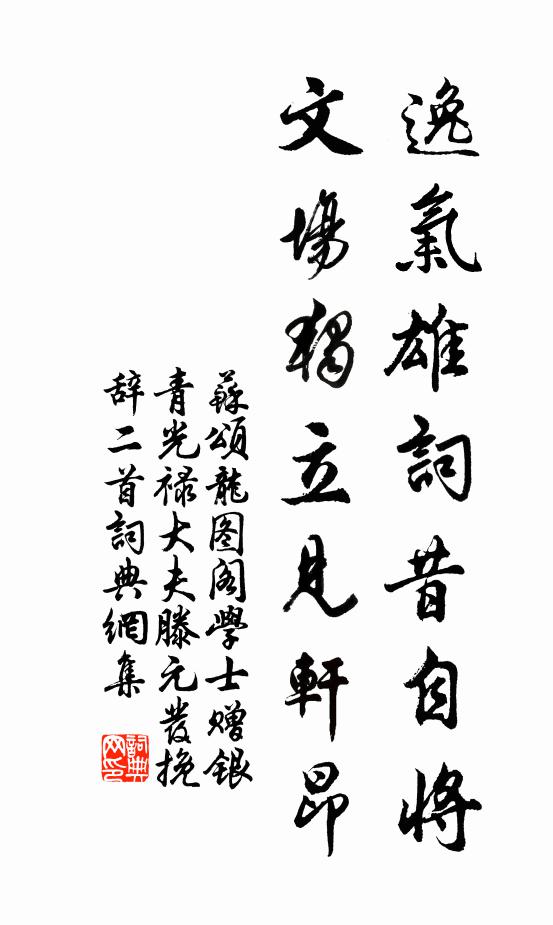 逸氣雄詞昔自將
文場獨立見軒昂
蘇頌龍图阁學士赠銀
青光禄大夫滕元發挽
辞二首詞典網集
詞典
网印